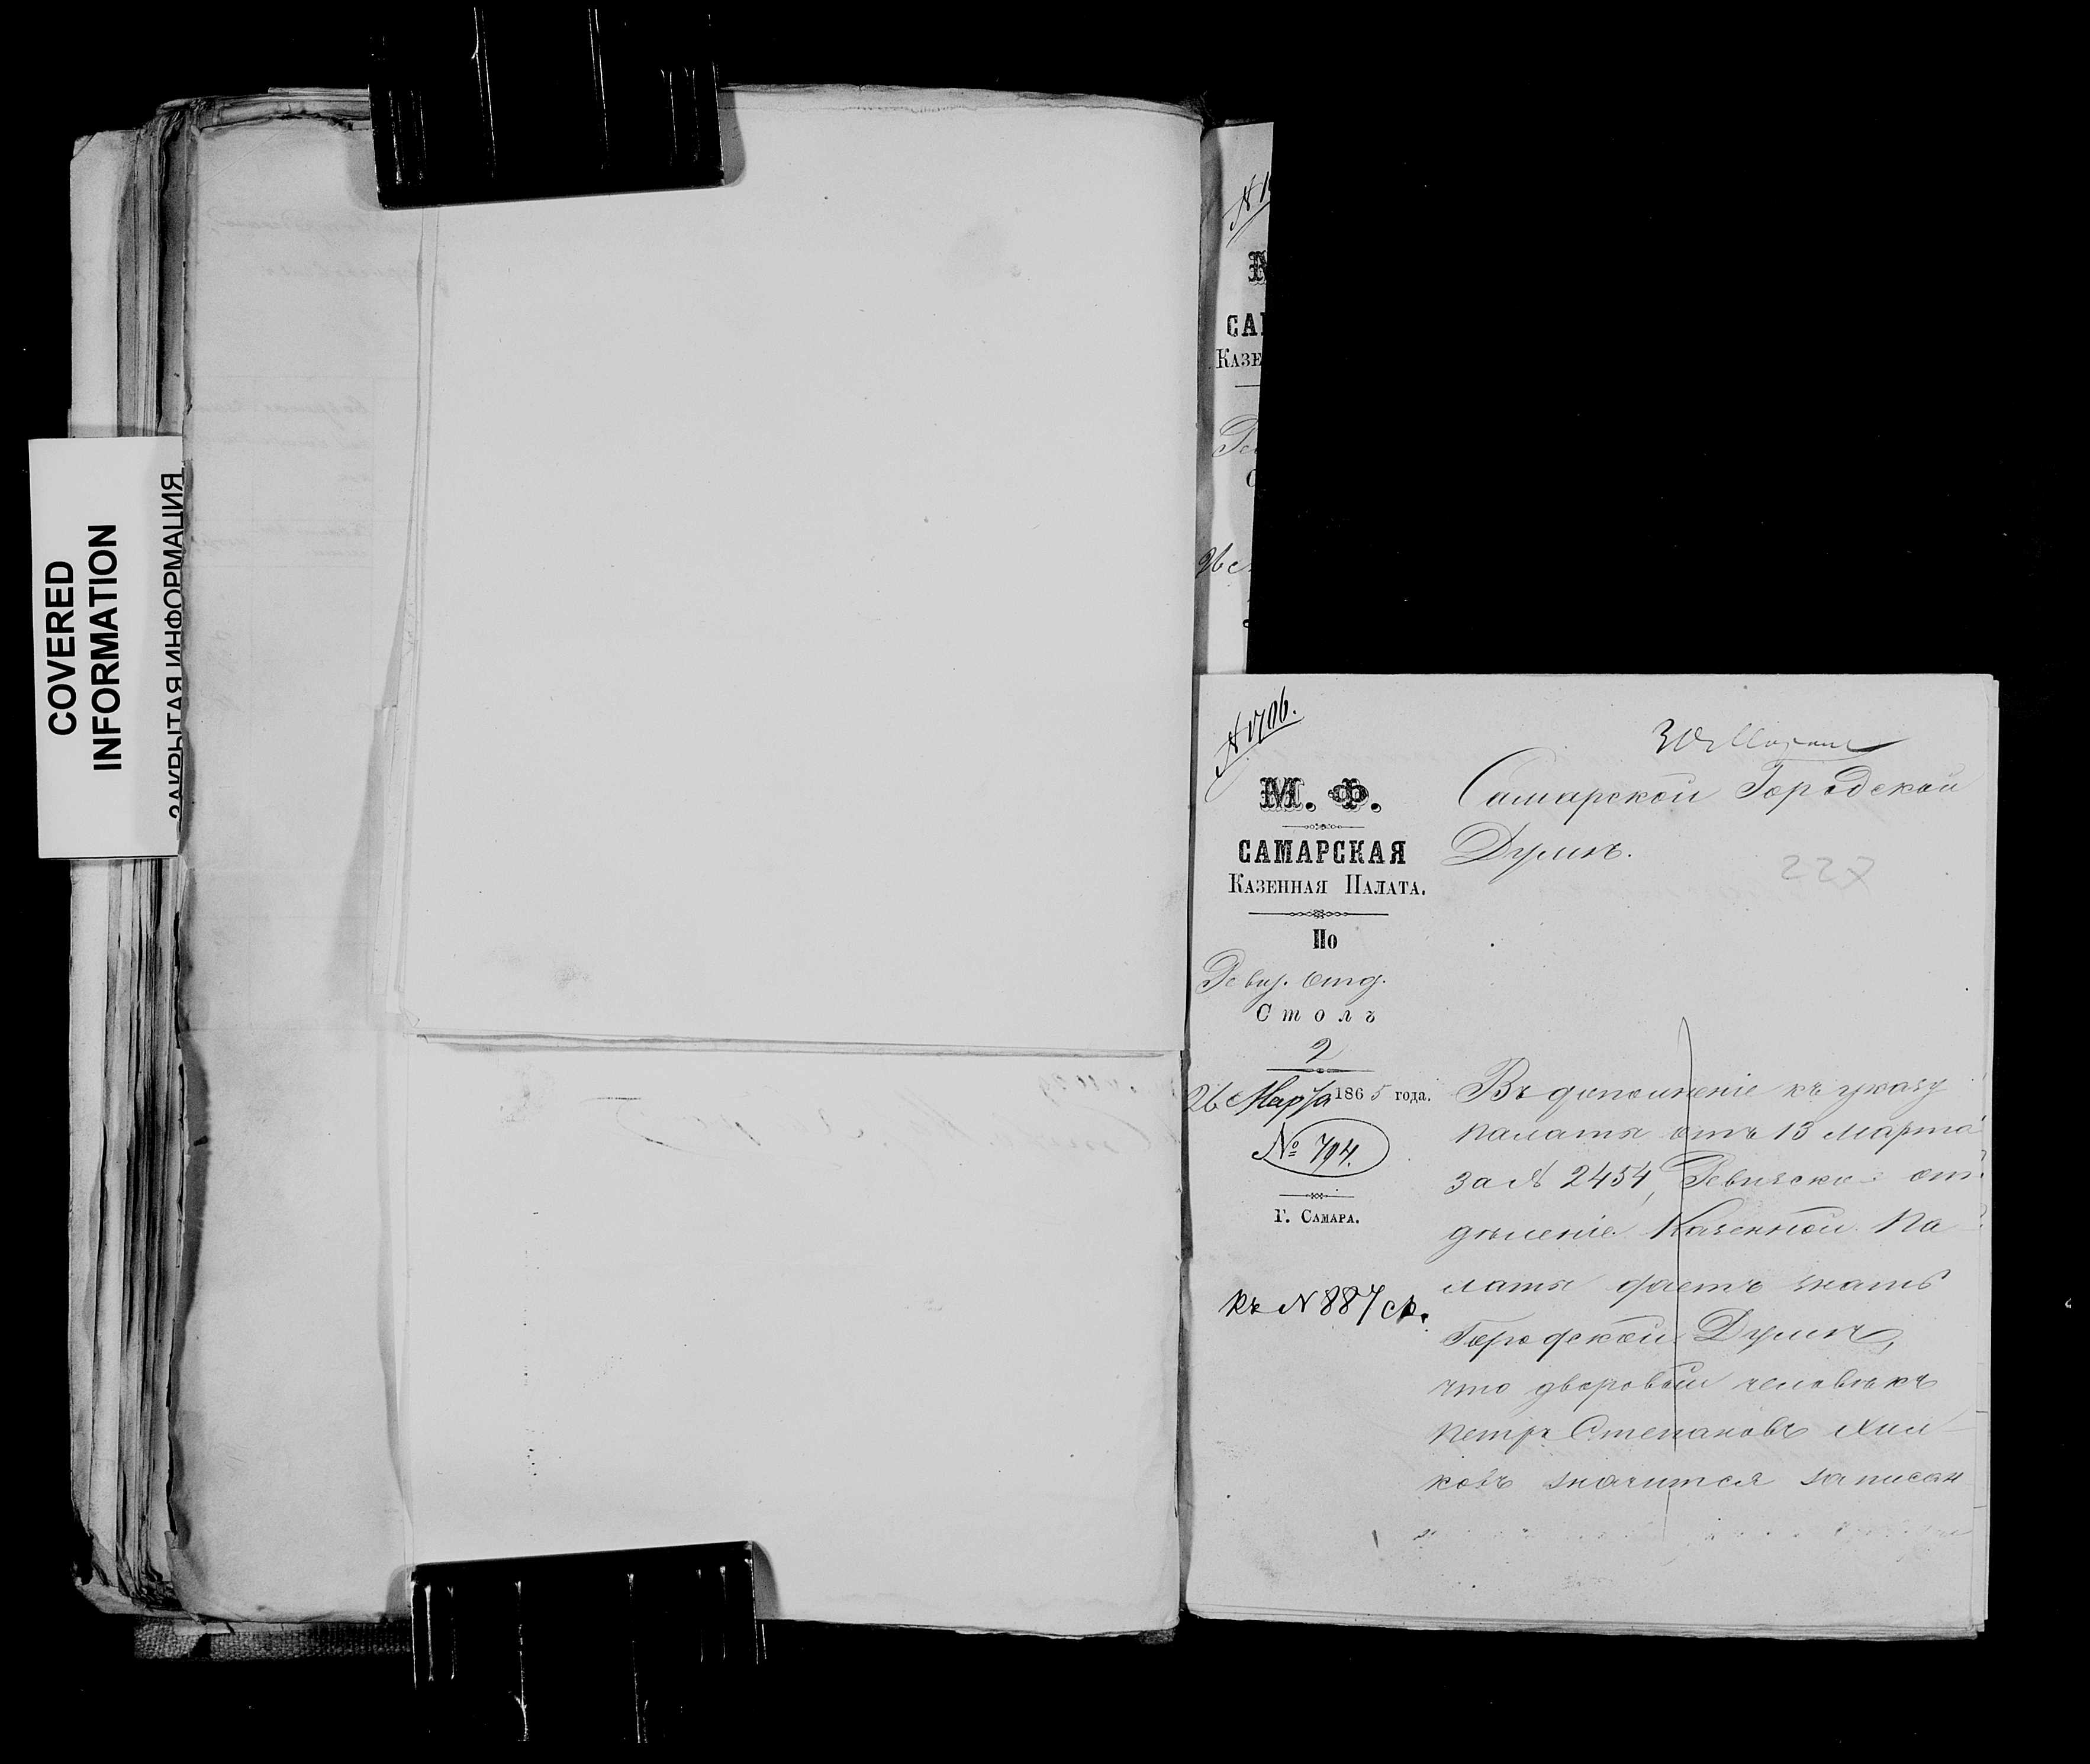 COVERED
INFORMATION
ЗАКРЫТАЯ ИНФОРМАЦИЯ
САМ
КАЗЕ
№ 1706.
30 Марта
М. Ф.
САМАРСКАЯ
КАЗЕННАЯ ПАЛАТА.
По
Ревиз. Отд.
Столъ
2
26 Марта 1865 года.
№ 794.
Г. САМАРА.
къ N 887 ск.
Самарской Городской
Думѣ.
227
Въ дополненіе къ указу
Палаты отъ 13 Марта
за № 2454, Ревизское от
дѣленіе Казенной Па
латы даетъ знать
Городской Думѣ,
что дворовый человѣкъ
Петръ Степановъ
ковъ значится записан